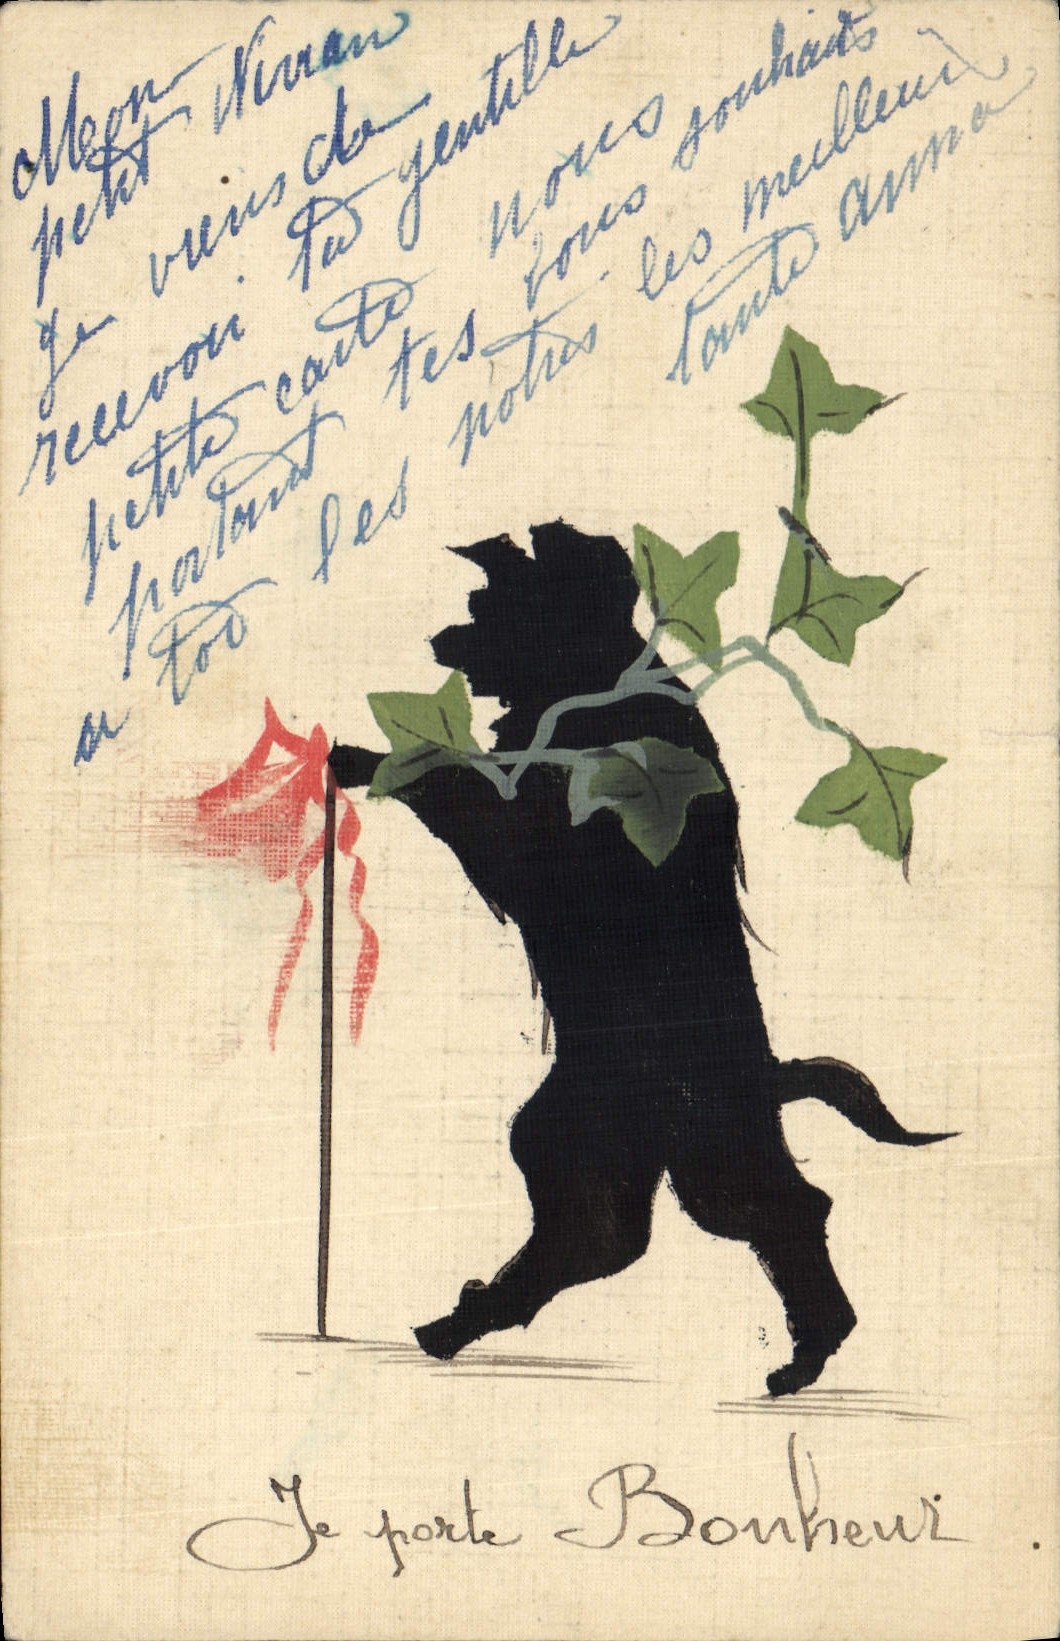 Mon
petit Nirran
je viens de
recevoir ta gentille
petite carte nous
portant tes bons souhaits
a toi les notres les meilleurs
tante anna
Je porte Bonheur